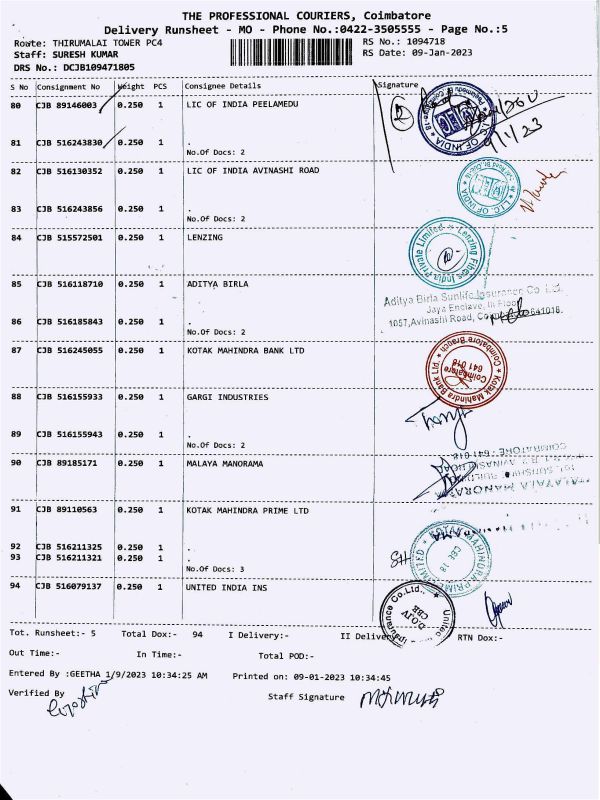 THE PROFESSIONAL COURIERS, Coimbatore
Delivery Runsheet - MO - Phone No.:0422-3505555 - Page No.:5
Route: THIRUMALAI TOWER PC4
RS No.: 1094718
Staff: SURESH KUMAR
RS Date: 09-Jan-2023
DRS No.: DCJB109471805
S No Consignment No Weight PCS Consignee Details Signature
80 CJB 89146003 0.250 1 LIC OF INDIA PEELAMEDU
9/1/23
81 CJB 516243830 0.250 1 .
No.Of Docs: 2
82 CJB 516130352 0.250 1 LIC OF INDIA AVINASHI ROAD
83 CJB 516243856 0.250 1 .
No.Of Docs: 2
84 CJB 515572501 0.250 1 LENZING
Lenzing Fibers India Private Limited
85 CJB 516118710 0.250 1 ADITYA BIRLA
Aditya Birla Sunlife Insurance Co. Ltd.
Jaya Enclave, III Floor
1057, Avinashi Road, 641018.
86 CJB 516185843 0.250 1 .
No.Of Docs: 2
87 CJB 516245055 0.250 1 KOTAK MAHINDRA BANK LTD
Kotak Mahindra Bank Ltd. Coimbatore Branch
Coimbatore
641 018
88 CJB 516155933 0.250 1 GARGI INDUSTRIES
89 CJB 516155943 0.250 1 .
No.Of Docs: 2
90 CJB 89185171 0.250 1 MALAYA MANORAMA
COIMBATORE - 641 018
91 CJB 89110563 0.250 1 KOTAK MAHINDRA PRIME LTD
KOTAK MAHINDRA PRIME LIMITED
CBE 18
92 CJB 516211325 0.250 1 .
93 CJB 516211321 0.250 1 .
No.Of Docs: 3
94 CJB 516079137 0.250 1 UNITED INDIA INS
United Insurance Co. Ltd.
CBE
Tot. Runsheet:- 5 Total Dox:- 94 I Delivery:- II Delivery RTN Dox:-
Out Time:- In Time:- Total POD:-
Entered By :GEETHA 1/9/2023 10:34:25 AM Printed on: 09-01-2023 10:34:45
Verified By
Staff Signature